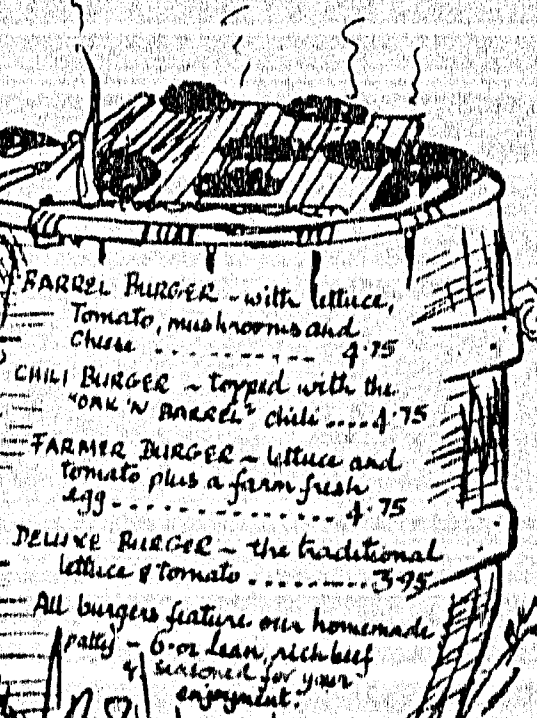 BARREL BURGER - with lettuce,
Tomato, mushrooms and
Cheese ............ 4.75
CHILI BURGER ~ topped with the
"OAK 'N BARREL" chili .... 4.75
FARMER BURGER ~ lettuce and
tomato plus a farm fresh
egg ................ 4.75
DELUXE BURGER ~ the traditional
lettuce & tomato ......... 3.95
All burgers feature our homemade
patty - 6 oz lean, rich beef
& seasoned for your
enjoyment.